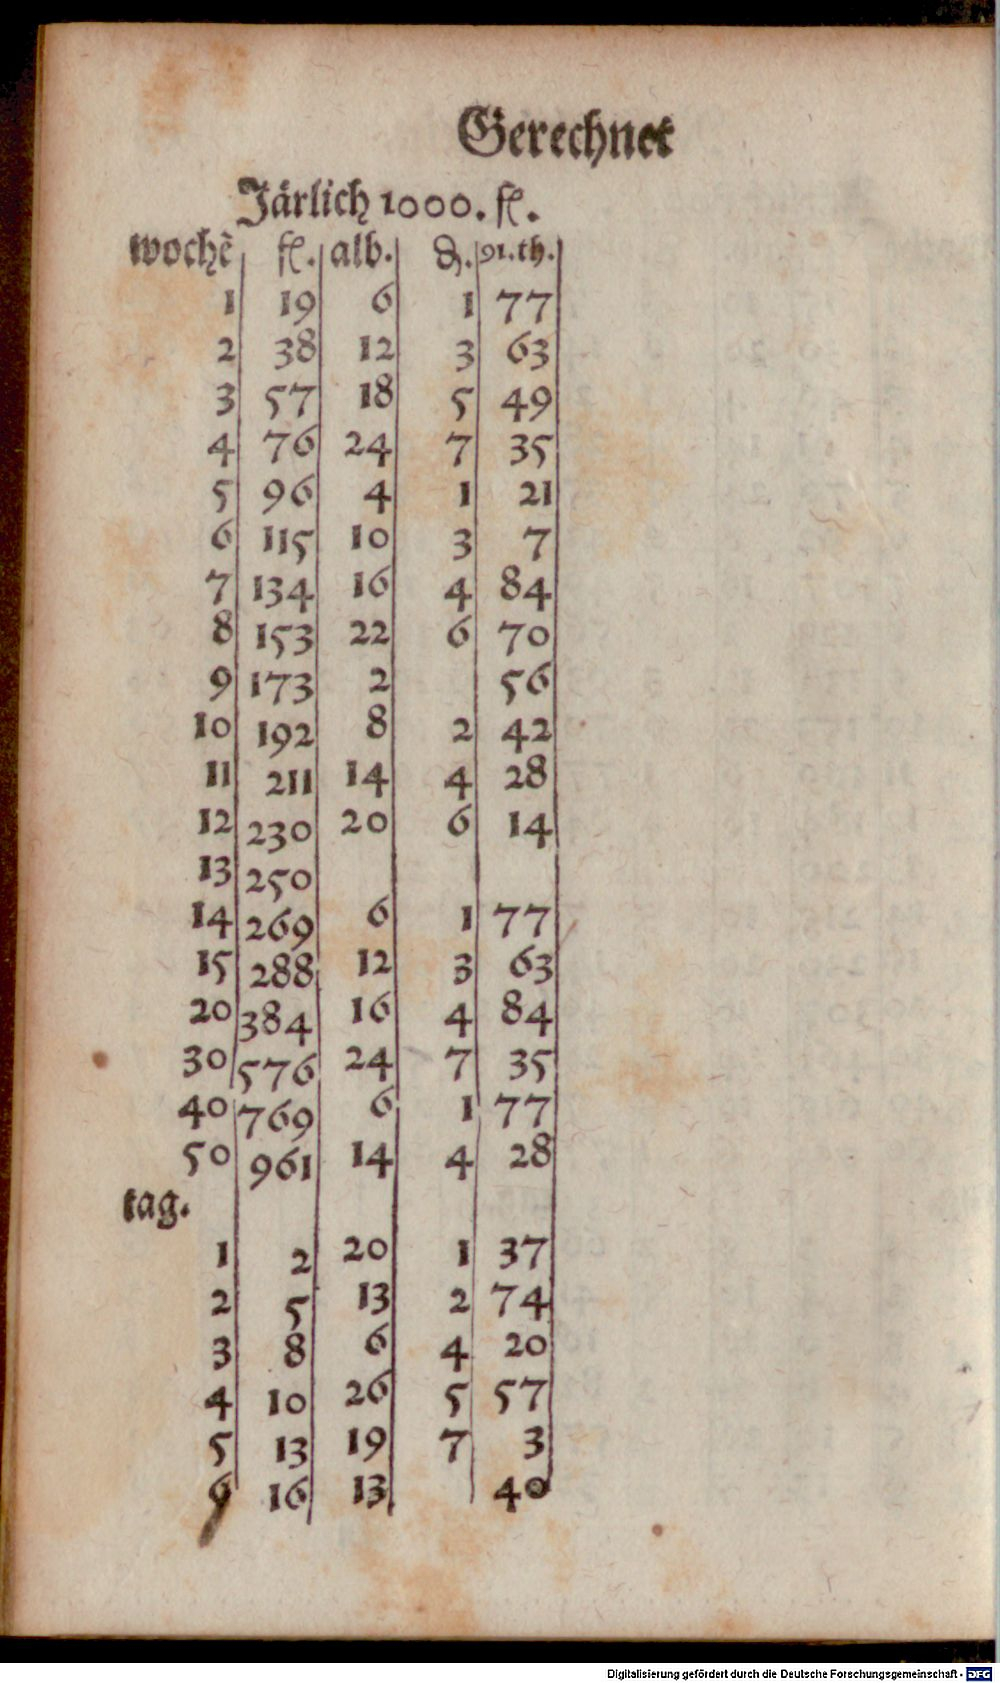 Gerechnet
Järlich 1000. fl.
wochẽ fl. alb. ₰. 91.th.
1 19 6 1 77
2 38 12 3 63
3 57 18 5 49
4 76 24 7 35
5 96 4 1 21
6 115 10 3 7
7 134 16 4 84
8 153 22 6 70
9 173 2 56
10 192 8 2 42
11 211 14 4 28
12 230 20 6 14
13 250
14 269 6 1 77
15 288 12 3 63
20 384 16 4 84
30 576 24 7 35
40 769 6 1 77
50 961 14 4 28
tag.
1 2 20 1 37
2 5 13 2 74
3 8 6 4 20
4 10 26 5 57
5 13 19 7 3
6 16 13 40
Digitalisierung gefördert durch die Deutsche Forschungsgemeinschaft - DFG